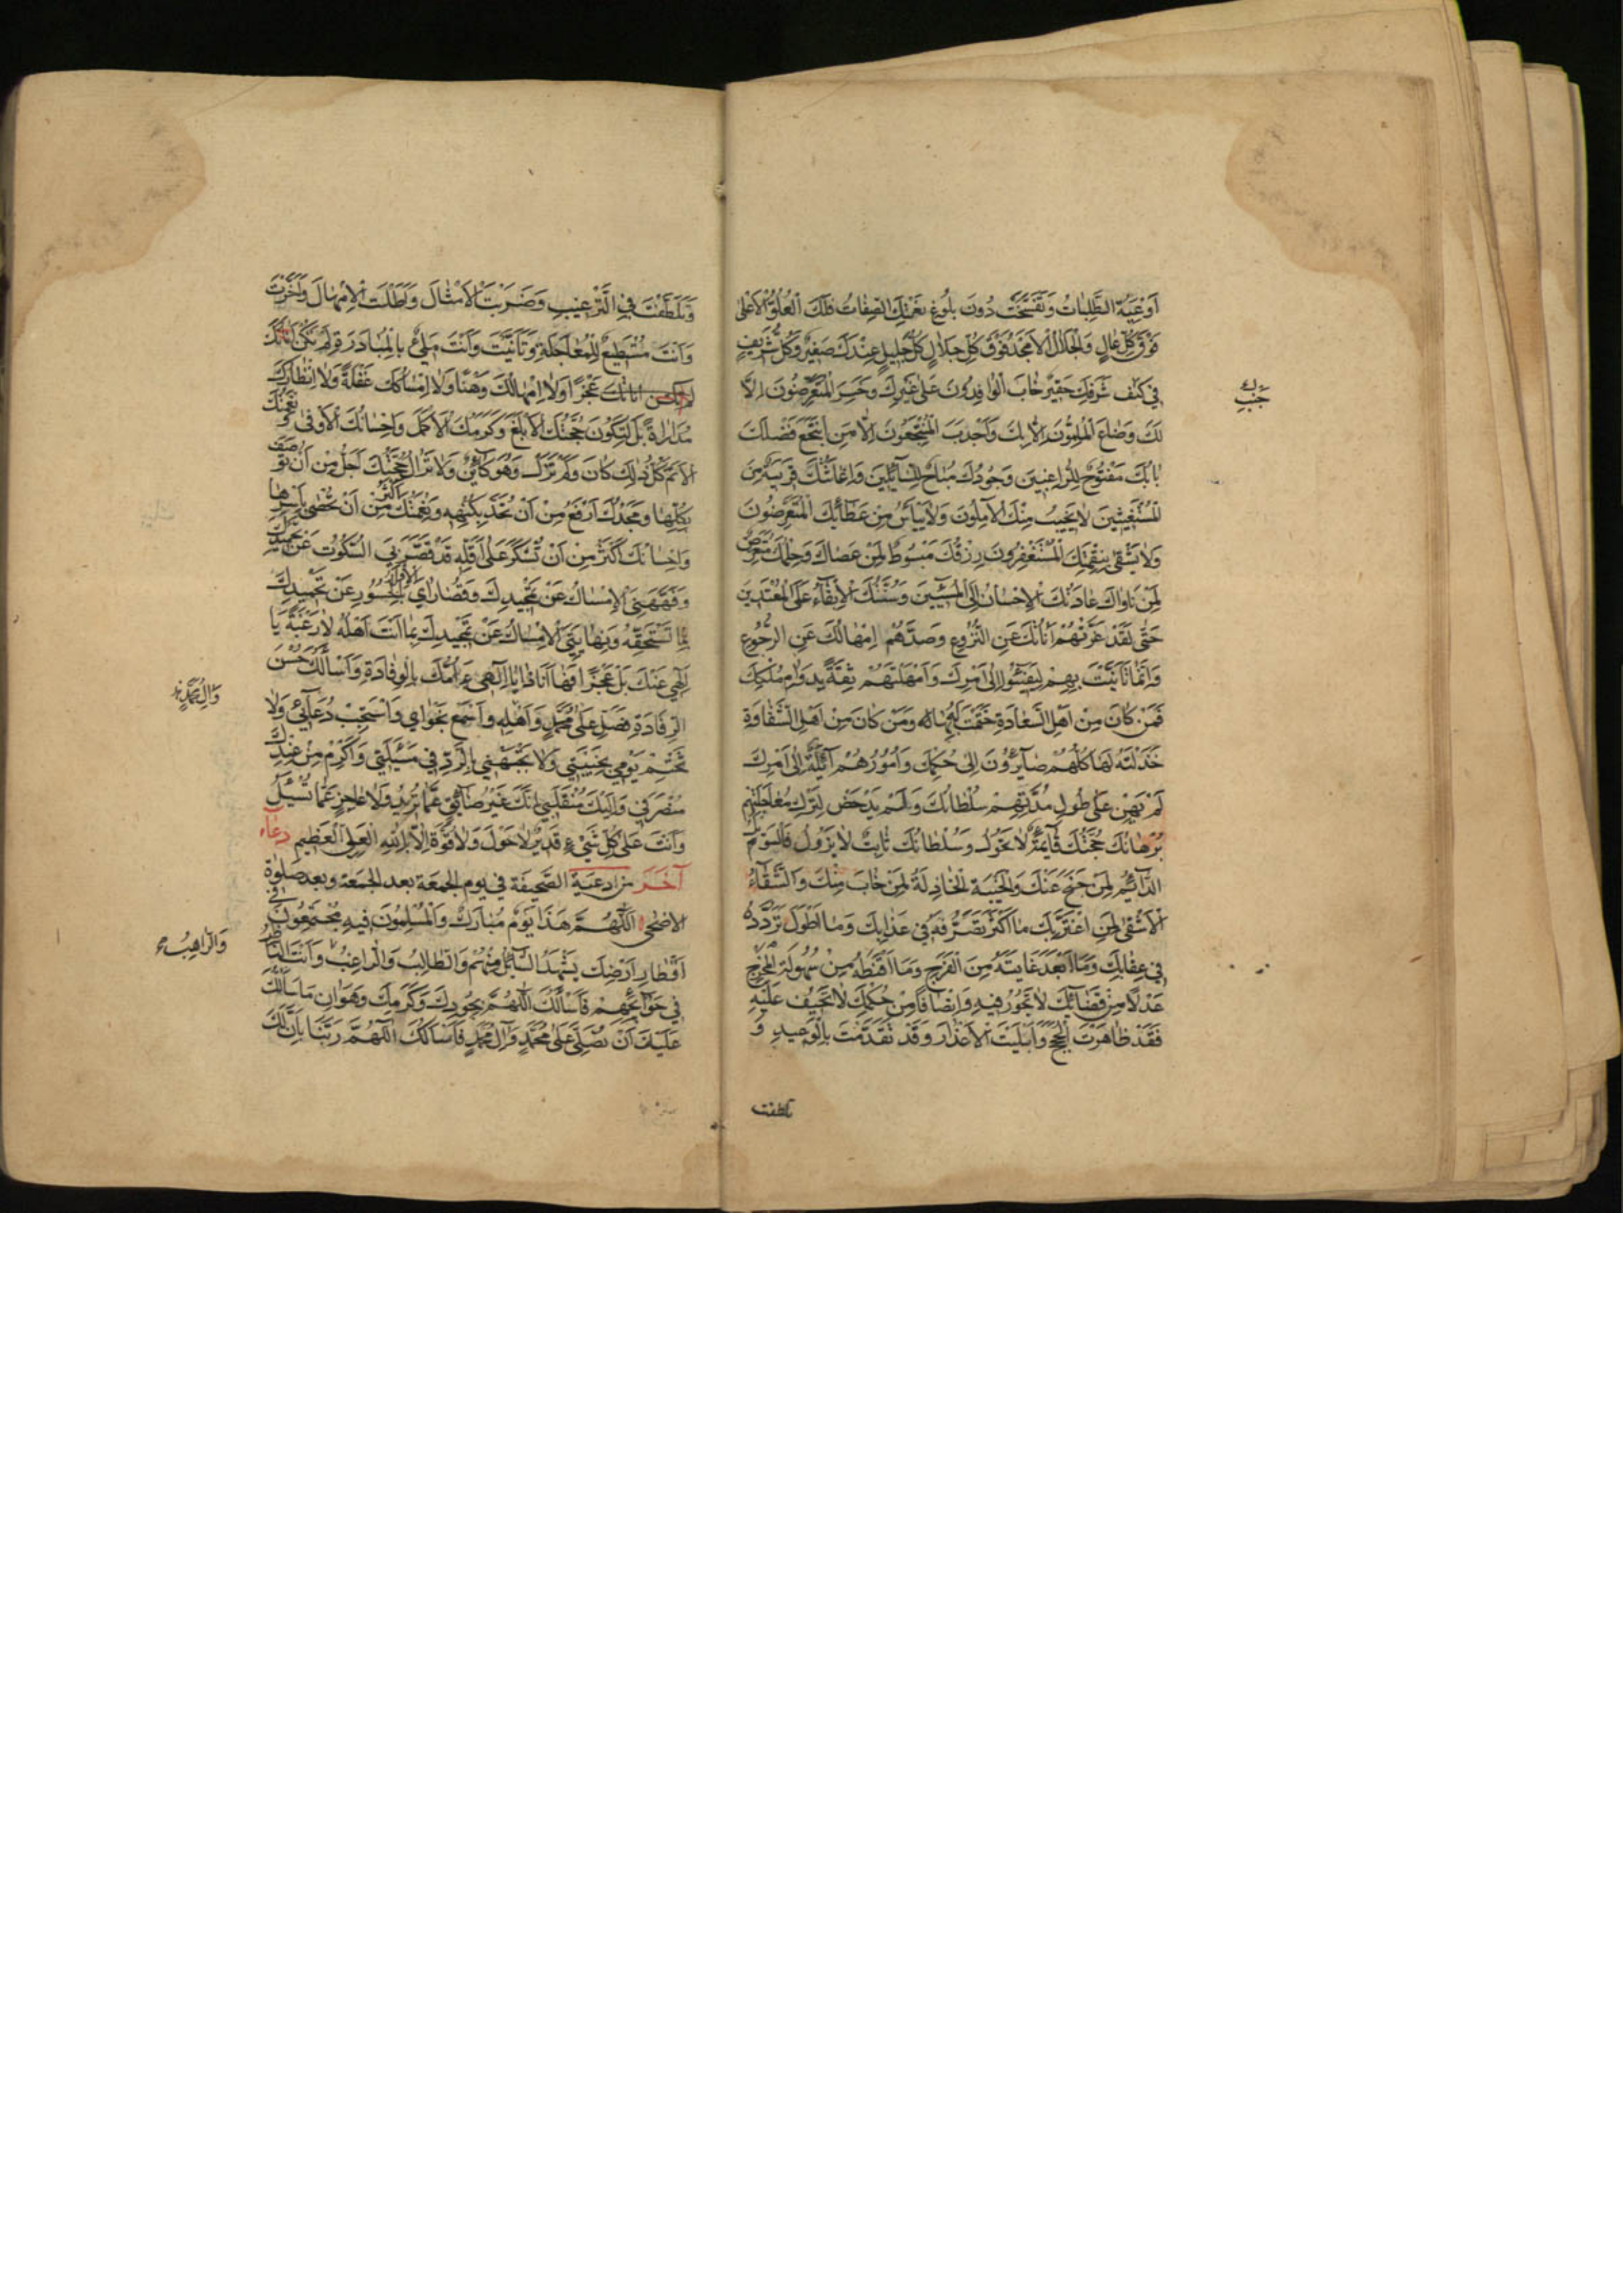 اَوْعِيَةُ الطَّلِبَاتُ وَتَفَسَّخَتْ دُونَ بُلُوغِ نَعْتِكَ الصِّفَاتُ فَلَكَ الْعُلُوُّ الْاَعْلٰى
فَوْقَ كُلِّ عَالٍ وَالْجَلَالُ الْاَمْجَدُ فَوْقَ كُلِّ جَلَالٍ كُلُّ جَلِيلٍ عِنْدَكَ صَغِيرٌ وَكُلُّ شَرِيفٍ
فِي كَنَفِ شَرَفِكَ حَقِيرٌ خَابَ الْوَافِدُونَ عَلٰى غَيْرِكَ وَخَسِرَ الْمُتَعَرِّضُونَ اِلَّا
لَكَ وَضَاعَ الْمُلِمُّونَ اِلَّا بِكَ وَاَجْدَبَ الْمُنْتَجِعُونَ اِلَّا مَنِ انْتَجَعَ فَضْلَكَ
بَابُكَ مَفْتُوحٌ لِلرَّاغِبِينَ وَجُودُكَ مُبَاحٌ لِلسَّآئِلِينَ وَاِغَاثَتُكَ قَرِيبَةٌ مِنَ
الْمُسْتَغِيثِينَ لَا يَخِيبُ مِنْكَ الْآمِلُونَ وَلَا يَيْاَسُ مِنْ عَطَآئِكَ الْمُتَعَرِّضُونَ
وَلَا يَشْقٰى بِنِقْمَتِكَ الْمُسْتَغْفِرُونَ رِزْقُكَ مَبْسُوطٌ لِمَنْ عَصَاكَ وَحِلْمُكَ مُعْتَرِضٌ
لِمَنْ نَاوَاكَ عَادَتُكَ الْاِحْسَانُ اِلَى الْمُسِيئِينَ وَسُنَّتُكَ الْاِبْقَآءُ عَلَى الْمُعْتَدِينَ
حَتّٰى لَقَدْ غَرَّتْهُمْ اَنَاتُكَ عَنِ النُّزُوعِ وَصَدَّهُمْ اِمْهَالُكَ عَنِ الرُّجُوعِ
وَاِنَّمَا تَاَنَّيْتَ بِهِمْ لِيَفِيئُوا اِلٰى اَمْرِكَ وَاَمْهَلْتَهُمْ ثِقَةً بِدَوَامِ مُلْكِكَ
فَمَنْ كَانَ مِنْ اَهْلِ السَّعَادَةِ خَتَمْتَ لَهُ بِهَا وَمَنْ كَانَ مِنْ اَهْلِ الشَّقَاوَةِ
خَذَلْتَهُ لَهَا كُلُّهُمْ صَآئِرُونَ اِلٰى حُكْمِكَ وَاُمُورُهُمْ آئِلَةٌ اِلٰى اَمْرِكَ
لَمْ يَهِنْ عَلٰى طُولِ مُدَّتِهِمْ سُلْطَانُكَ وَلَمْ يَدْحَضْ لِتَرْكِ مُعَاجَلَتِهِمْ
بُرْهَانُكَ حُجَّتُكَ قَآئِمَةٌ لَا تَحُولُ وَسُلْطَانُكَ ثَابِتٌ لَا يَزُولُ فَالْوَيْلُ
الدَّآئِمُ لِمَنْ جَنَحَ عَنْكَ وَالْخَيْبَةُ الْخَاذِلَةُ لِمَنْ خَابَ مِنْكَ وَالشَّقَآءُ
الْاَشْقٰى لِمَنِ اغْتَرَّ بِكَ مَا اَكْثَرَ تَصَرُّفَهُ فِي عَذَابِكَ وَمَا اَطْوَلَ تَرَدُّدَهُ
فِي عِقَابِكَ وَمَا اَبْعَدَ غَايَتَهُ مِنَ الْفَرَجِ وَمَا اَقْنَطَهُ مِنْ سُهُولَةِ الْمَخْرَجِ
عَدْلًا مِنْ قَضَآئِكَ لَا تَجُورُ فِيهِ وَاِنْصَافًا مِنْ حُكْمِكَ لَا تَحِيفُ عَلَيْهِ
فَقَدْ ظَاهَرْتَ الْحُجَجَ وَاَبْلَيْتَ الْاَعْذَارَ وَقَدْ تَقَدَّمْتَ بِالْوَعِيدِ وَ
تلطفت
وَتَلَطَّفْتَ فِي التَّرْغِيبِ وَضَرَبْتَ الْاَمْثَالَ وَاَطَلْتَ الْاِمْهَالَ وَاَخَّرْتَ
وَاَنْتَ مُسْتَطِيعٌ لِلْمُعَاجَلَةِ وَتَاَنَّيْتَ وَاَنْتَ مَلِيءٌ بِالْمُبَادَرَةِ لَمْ تَكُنْ اَنَاتُكَ
لم تكن اناتك عَجْزًا وَلَا اِمْهَالُكَ وَهْنًا وَلَا اِمْسَاكُكَ غَفْلَةً وَلَا انْتِظَارُكَ
مُدَارَاةً بَلْ لِتَكُونَ حُجَّتُكَ الْاَبْلَغَ وَكَرَمُكَ الْاَكْمَلَ وَاِحْسَانُكَ الْاَوْفٰى وَنِعْمَتُكَ
الْاَتَمَّ كُلُّ ذٰلِكَ كَانَ وَلَمْ تَزَلْ وَهُوَ كَآئِنٌ وَلَا تَزَالُ حُجَّتُكَ اَجَلُّ مِنْ اَنْ تُوصَفَ
بِكُلِّهَا وَمَجْدُكَ اَرْفَعُ مِنْ اَنْ تُحَدَّ بِكُنْهِهِ وَنِعْمَتُكَ اَكْثَرُ مِنْ اَنْ تُحْصٰى بِاَسْرِهَا
وَاِحْسَانُكَ اَكْثَرُ مِنْ اَنْ تُشْكَرَ عَلٰى اَقَلِّهِ قَدْ قَصَّرَ بِيَ السُّكُوتُ عَنْ تَحْمِيدِكَ
وَفَهَّهَنِيَ الْاِمْسَاكُ عَنْ تَمْجِيدِكَ وَقُصَارَايَ الْاِقْرَارُ بِالْحُسُورِ عَنْ تَحْمِيدِكَ
بِمَا تَسْتَحِقُّهُ وَنِهَايَتِيَ الْاِمْسَاكُ عَنْ تَمْجِيدِكَ بِمَا اَنْتَ اَهْلُهُ لَا رَغْبَةً يَا
اِلٰهِي عَنْكَ بَلْ عَجْزًا فَهَا اَنَا ذَا يَا اِلٰهِي اَؤُمُّكَ بِالْوِفَادَةِ وَاَسْاَلُكَ حُسْنَ
الرِّفَادَةِ فَصَلِّ عَلٰى مُحَمَّدٍ وَاَهْلِهِ وَاسْمَعْ نَجْوَايَ وَاسْتَجِبْ دُعَآئِي وَلَا
تَخْتِمْ يَوْمِي بِخَيْبَتِي وَلَا تَجْبَهْنِي بِالرَّدِّ فِي مَسْئَلَتِي وَاَكْرِمْ مِنْ عِنْدِكَ
مُنْصَرَفِي وَاِلَيْكَ مُنْقَلَبِي اِنَّكَ غَيْرُ ضَآئِقٍ عَمَّا تُرِيدُ وَلَا عَاجِزٍ عَمَّا تُسْئَلُ
وَاَنْتَ عَلٰى كُلِّ شَيْءٍ قَدِيرٌ لَا حَوْلَ وَلَا قُوَّةَ اِلَّا بِاللّٰهِ الْعَلِيِّ الْعَظِيمِ دعاء
آخر من ادعية الصحيفة في يوم الجمعة بعد الجمعة وبعد صلوة
الاضحى اَللّٰهُمَّ هٰذَا يَوْمٌ مُبَارَكٌ وَالْمُسْلِمُونَ فِيهِ مُجْتَمِعُونَ فِي
اَقْطَارِ اَرْضِكَ يَشْهَدُ السَّآئِلُ مِنْهُمْ وَالطَّالِبُ وَالرَّاغِبُ وَاَنْتَ النَّاظِرُ
فِي حَوَآئِجِهِمْ فَاَسْاَلُكَ اللّٰهُمَّ بِجُودِكَ وَكَرَمِكَ وَهَوَانِ مَا سَاَلْتُكَ
عَلَيْكَ اَنْ تُصَلِّيَ عَلٰى مُحَمَّدٍ وَآلِ مُحَمَّدٍ فَاَسْاَلُكَ اللّٰهُمَّ رَبَّنَا بِاَنَّ لَكَ
وَآلِ مُحَمَّدٍ
وَالرَّاهِبُ